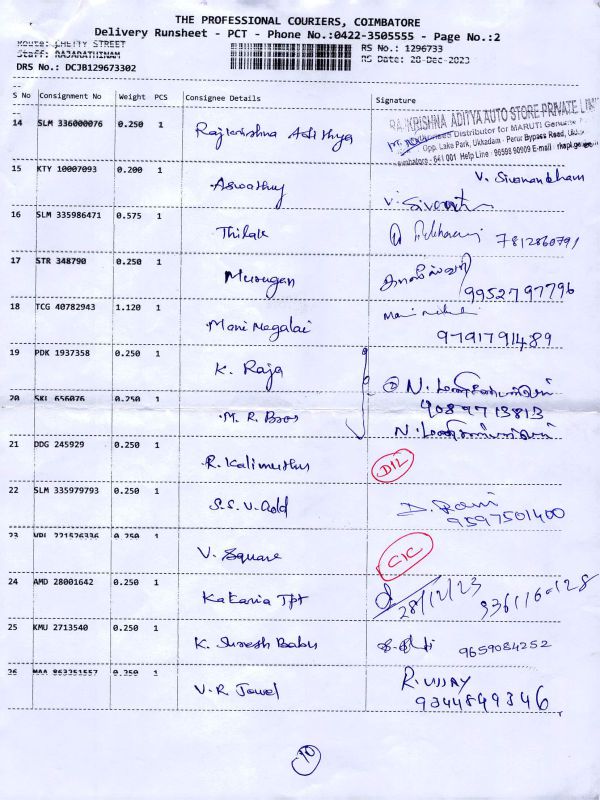 THE PROFESSIONAL COURIERS, COIMBATORE
Delivery Runsheet - PCT - Phone No.:0422-3505555 - Page No.:2
Route: CHETTY STREET
Staff: RAJARATHINAM
RS No.: 1296733
RS Date: 28-Dec-2023
DRS No.: DCJB129673302
S No Consignment No Weight PCS Consignee Details Signature
14 SLM 336000076 0.250 1 Rajkrishna Adithya
RAJKRISHNA ADITYA AUTO STORE PRIVATE LIM
Distributor for MARUTI Genuine
Opp. Lake Park, Ukkadam - Perur Bypass Road,
641 001 Help Line: 96598 90909 E-mail:
15 KTY 10007093 0.200 1 Aswathy
V. Sivanantham
16 SLM 335986471 0.575 1 Thilak 7812860791
17 STR 348790 0.250 1 Murugan
9952797796
18 TCG 40782943 1.120 1 Mani Megalai
9791791489
19 PDK 1937358 0.250 1 K. Raja
20 SKL 656076 0.250 1 M. R. Bros
9089713813
21 DDG 245929 0.250 1 R. Kalimuthu D/L
22 SLM 335979793 0.250 1 S.S.V. Gold D. Rani
9597501400
23 VPI 221526336 0.250 1 V. Square C/C
24 AMD 28001642 0.250 1 Kataria TPT 28/12/23
25 KMU 2713540 0.250 1 K. Suresh Babu 9659084252
26 MAA 863251557 0.250 1 V. R. Jewel R. VIJAY
9344849346
10